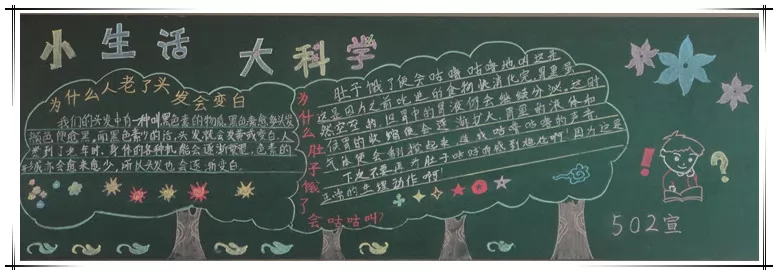 小生活 大科学
为什么人老了头发会变白
我们的头发中有一种叫黑色素的物质,黑色素愈多头发
颜色便愈黑。而黑色素少的话,头发就会发黄或变白。人
类到了老年时,身体的各种机能会逐渐衰退,色素的
形成亦会愈来愈少,所以头发也会逐渐变白。
为什么肚子饿了会咕咕叫?
肚子饿了便会咕噜咕噜地叫,这是
这是因为之前吃进的食物快消化完,胃里虽
然空空的,但胃中的胃液仍会继续分泌。这时
候胃的收缩便会逐渐扩大,胃里的液体和
气体便会翻搅起来,造成咕噜咕噜的声音。
下次不要再为肚子咕咕响感到尴尬啊!因为这是
正常的生理动作啊!
! ?
502宣